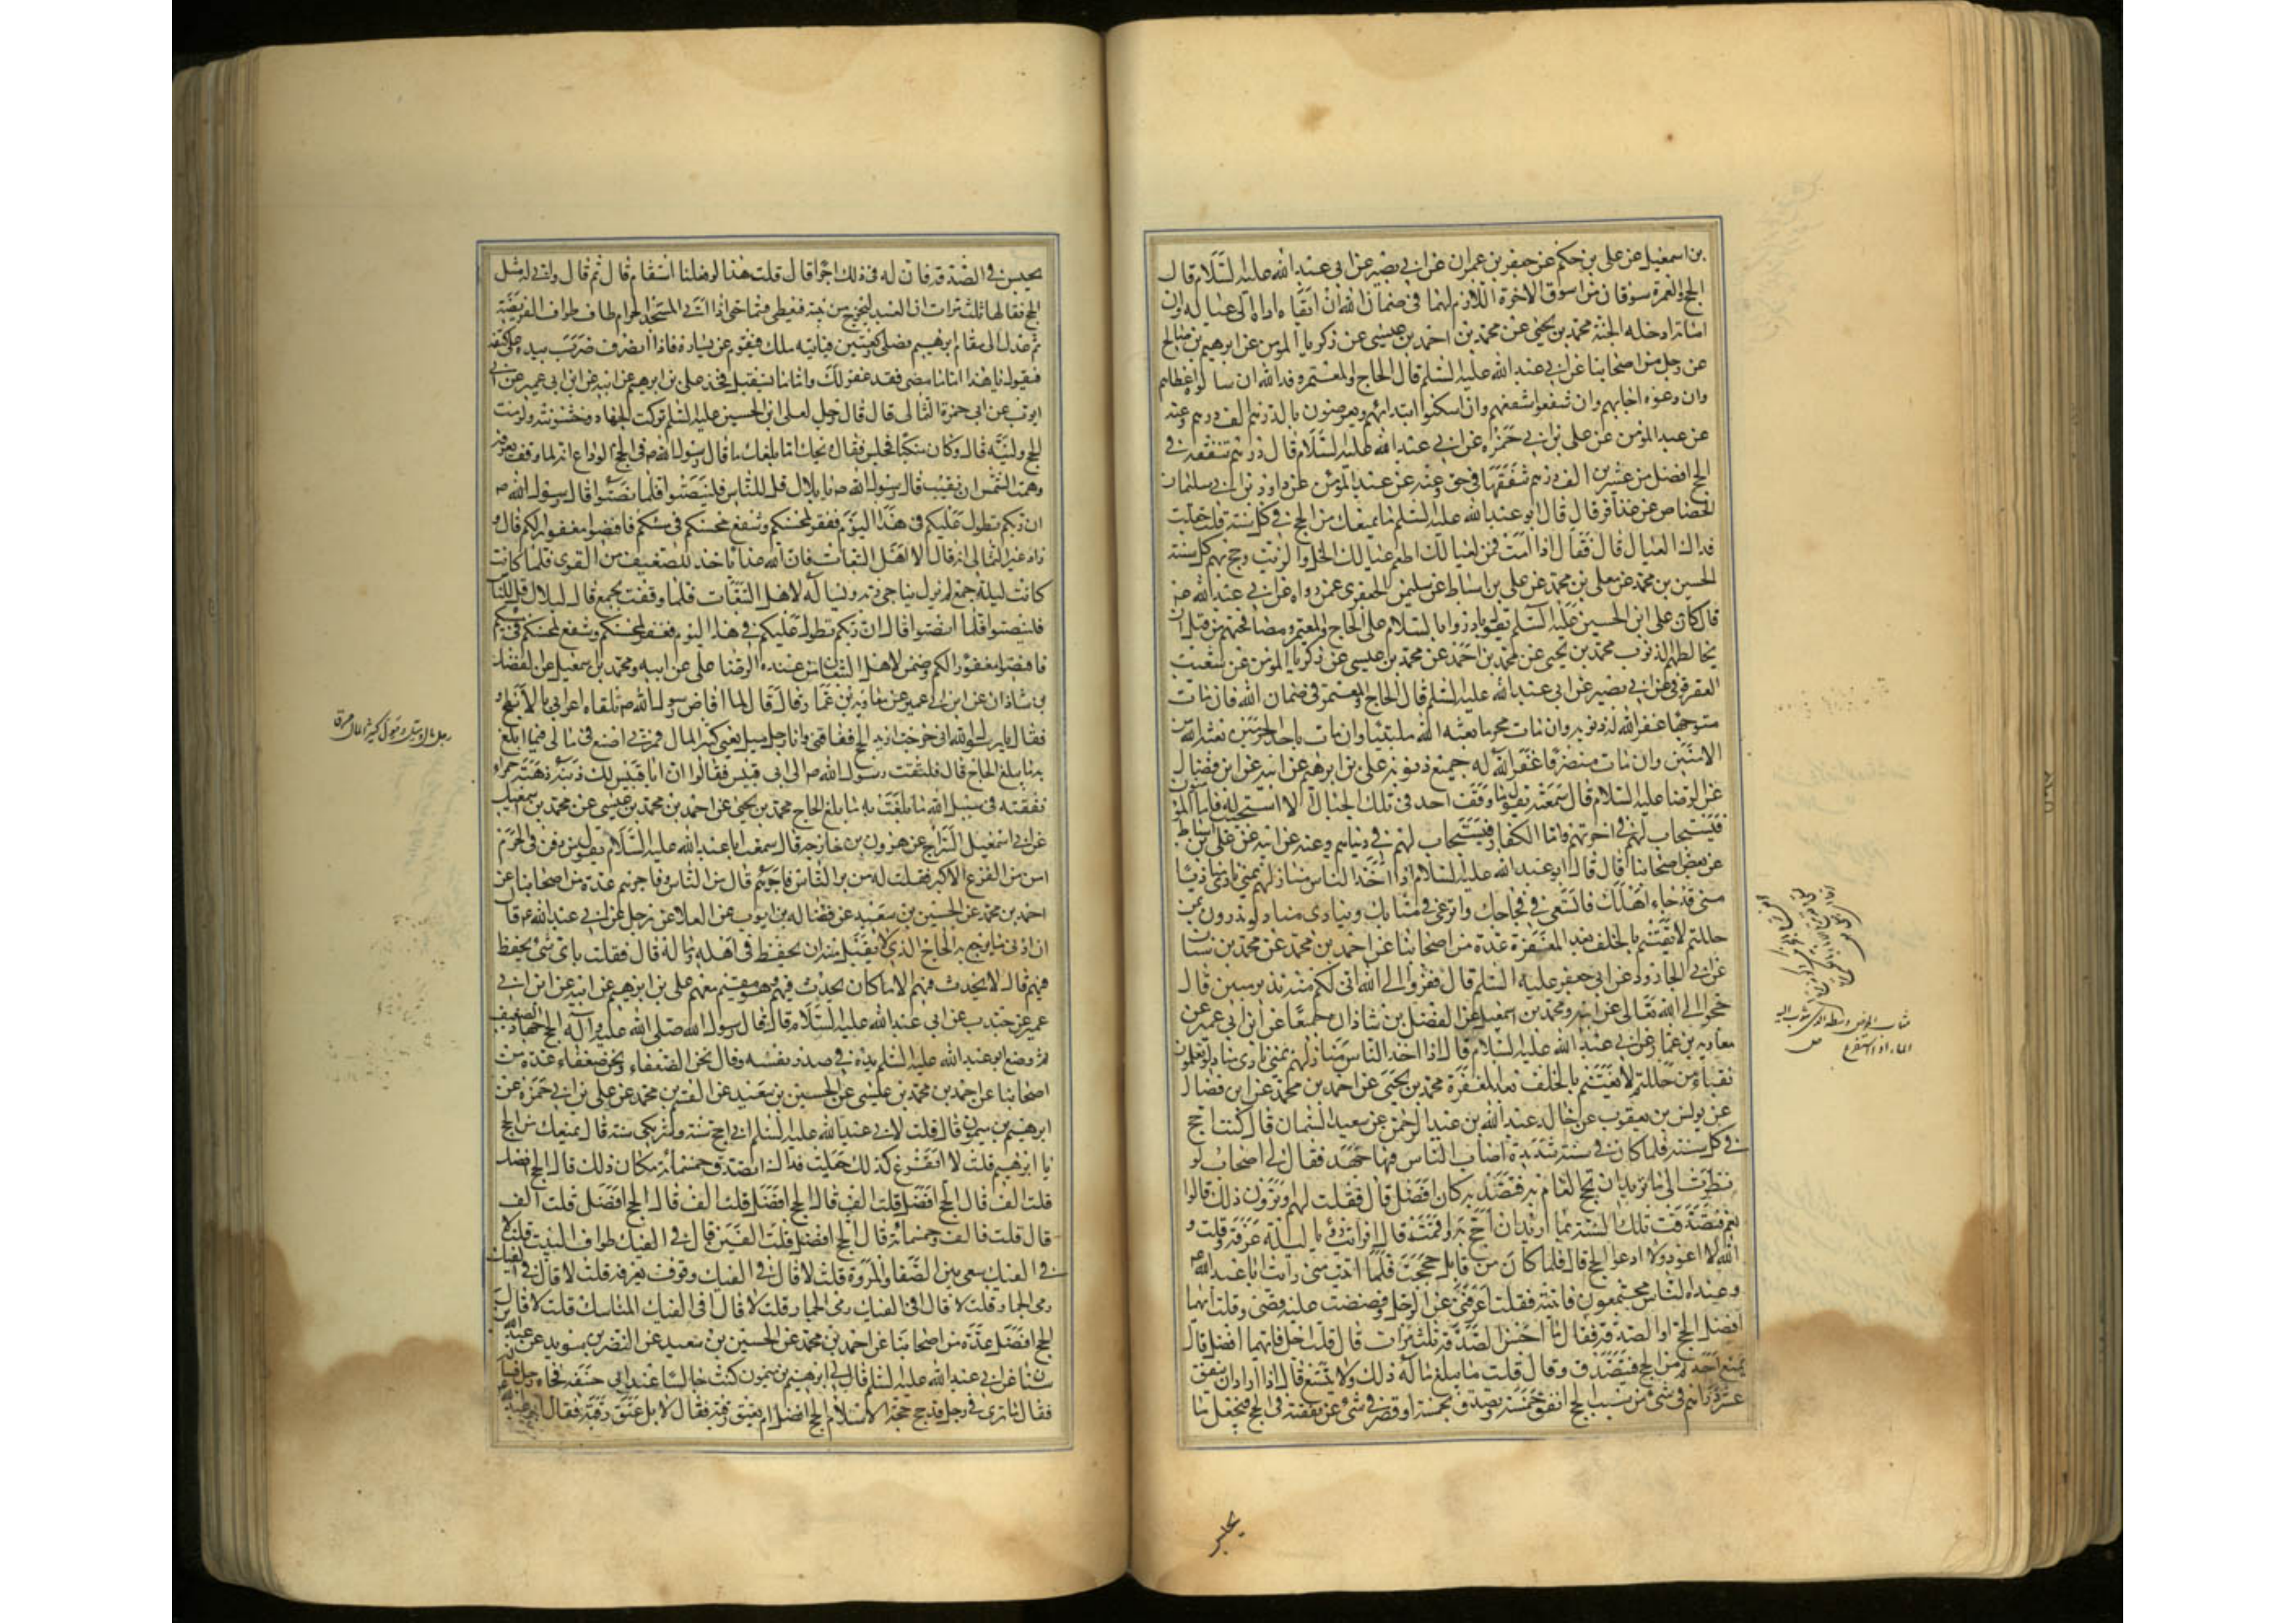 بن اسمعيل عن علي بن حكم عن جعفر بن عمران عن ابي بصير عن ابي عبد الله عليه السلام قال
الحج والعمرة سوقان من اسوق الاخرة اللازم لهما في ضمان الله ان ابقاه اداه الى عياله وان
اماته ادخله الجنة محمد بن يحيى عن محمد بن احمد بن عيسى عن زكريا المومن عن ابرهيم بن صالح
عن رجل من اصحابنا عن ابي عبد الله عليه السلم قال الحاج والمعتمر وفد الله ان سالوه اعطاهم
وان دعوه اجابهم وان شفعوا شفعهم وان سكتوا ابتدائهم ويعوضون بالدرهم الف درهم وعنه
عن عبد المؤمن عن علي بن ابي حمزه عن ابي عبد الله عليه السلام قال درهم تنفقه في
الحج افضل من عشرين الف درهم تنفقها في حق وعنه عن عبد المؤمن عن داود بن ابي سليمان
الجصاص عن عذافر قال قال ابو عبد الله عليه السلم ما يمنعك من الحج في كل سنة قلت جعلت
فداك العيال قال فقال اذا مت فمن لعيالك اطعم عيالك الخل والزيت وحج بهم كل سنة
الحسين بن محمد عن معلى بن محمد عن علي بن اسباط عن سليمن الجعفري عمن رواه عن ابي عبد الله ع
قال كان علي ابن الحسين عليه السلم يقول بادروا بالسلام على الحاج والمعتمر ومصافحتهم من قبل ان
يخالطهم الذنوب محمد بن يحيى عن محمد بن احمد عن محمد بن عيسى عن زكريا المومن عن شعيب
العقرقوفي عن ابي بصير عن ابي عبد الله عليه السلم قال الحاج والمعتمر في ضمان الله فان مات
متوجها غفر الله له ذنوبه وان مات محرما بعثه الله ملبيا وان مات باحد الحرمين بعثه الله من
الامنين وان مات منصرفا غفر الله له جميع ذنوبه علي بن ابرهيم عن ابيه عن ابن فضال
عن الرضا عليه السلام قال سمعته يقول ما وقف احد في تلك الجبال الا استجيب له فاما المومنون
فيستجاب لهم في اخرتهم واما الكفار فيستجاب لهم في دنياهم وعنه عن ابيه عن علي بن اسباط
عن بعض اصحابنا قال قال ابو عبد الله عليه السلام اذا اخذ الناس منازلهم بمنى نادى مناد يا
منى قد جاء اهلك فاتسعي في فجاجك واترعي في مثابك وينادي مناد لو تدرون بمن
حللتم لايقنتم بالخلف بعد المغفرة عدة من اصحابنا عن احمد بن محمد عن محمد بن سنان
عن ابي الجارود عن ابي جعفر عليه السلم قال ففروا الى الله اني لكم منه نذير مبين قال
حجوا الى الله تعالى عن ابيه ومحمد بن اسمعيل عن الفضل بن شاذان جميعا عن ابن ابي عمير عن
معاوية بن عمار عن ابي عبد الله عليه السلام قال اذا اخذ الناس منازلهم بمنى نادى مناد لو تعلمون
بفناء من حللتم لايقنتم بالخلف بعد المغفرة محمد بن يحيى عن احمد بن محمد عن ابن فضال
عن يونس بن يعقوب عن خاله عبد الله بن عبد الرحمن عن سعيد السمان قال كنت احج
في كل سنة فلما كان في سنة شديدة اصاب الناس فيها جهد فقال لي اصحابي لو
نظرت الى ما تريد ان تحج العام به فتصدق به كان افضل قال فقلت لهم وترون ذلك قالوا
نعم فتصدقت تلك السنة بما اريد ان احج به واقمت قال فرايت رؤيا ليلة عرفة وقلت و
الله لا اعود ولا ادع الحج قال فلما كان من قابل حججت فلما اتيت منى رايت ابا عبد الله ع
وعنده الناس مجتمعون فاتيته فقلت اخبرني عن الرجل وقصصت عليه قصتي وقلت ايهما
افضل الحج او الصدقة فقال ما احسن الصدقة ثلث مرات قال قلت اجل فايهما افضل قال
ما يمنع احدكم من الحج فيتصدق وقال قلت ما يبلغ ماله ذلك ولا يتسع قال اذا اراد ان ينفق
عشرة دراهم في شئ من سبب الحج انفق خمسة وتصدق بخمسة او قصر في شئ عن نفقته في الحج فيجعل ما
يحبس
يحبس في الصدقة فان له في ذلك اجرا قال قلت هذا لو فعلنا استقام قال ثم قال واني له مثل
الحج فقالها ثلث مرات ان العبد ليخرج من بيته فيعطي قسما حتى اذا اتى المسجد الحرام طاف طواف الفريضة
ثم عدل الى مقام ابرهيم فصلى ركعتين فياتيه ملك فيقوم عن يساره فاذا انصرف ضرب بيده على كتفه
فيقول يا هذا اما ما مضى فقد غفر لك واما ما تستقبل فخذ علي بن ابرهيم عن ابيه عن ابن ابي عمير عن ابي
ايوب عن ابي حمزة الثمالي قال قال رجل لعلي ابن الحسين عليه السلم تركت الجهاد وخشونته ولزمت
الحج ولينه قال وكان متكئا فجلس فقال ويحك اما بلغك ما قال رسول الله ص في حجة الوداع انه لما وقف بعرفة
وهمت الشمس ان تغيب قال رسول الله ص يا بلال قل للناس فلينصتوا فلما نصتوا قال رسول الله ص
ان ربكم تطول عليكم في هذا اليوم فغفر لمحسنكم وشفع محسنكم في مسيئكم فافيضوا مغفورا لكم قال و
زاد غير الثمالي انه قال الا اهل التبعات فان الله عدل ياخذ للضعيف من القوي فلما كانت
كانت ليلة جمع لم يزل يناجي ربه ويساله لاهل التبعات فلما وقفت بجمع قال لبلال قل للناس
فلينصتوا فلما انصتوا قال ان ربكم تطول عليكم في هذا اليوم فغفر لمحسنكم وشفع محسنكم في مسيئكم
فافيضوا مغفورا لكم وضمن لاهل التبعات من عنده الرضا علي عن ابيه ومحمد بن اسمعيل عن الفضل
بن شاذان عن ابن ابي عمير عن معاوية بن عمار قال قال لما افاض رسول الله ص تلقاه اعرابي بالابطح و
فقال يا رسول الله اني خرجت اريد الحج ففاتني وانا رجل ميل يعني كثير المال فمرني اصنع في مالي ما ابلغ
به ما يبلغ الحاج قال فالتفت رسول الله ص الى ابي قبيس فقال لو ان ابا قبيس لك زنته ذهبة حمراء
نفقته في سبيل الله ما بلغت به ما بلغ الحاج محمد بن يحيى عن احمد بن محمد بن عيسى عن محمد بن اسمعيل
عن ابي اسمعيل السراج عن هرون بن خارجة قال سمعت ابا عبد الله عليه السلام يقول من دفن في الحرم
امن من الفزع الاكبر فقلت له من بر الناس وفاجرهم قال من بر الناس وفاجرهم عدة من اصحابنا عن
احمد بن محمد عن الحسين بن سعيد عن فضالة بن ايوب عن العلا عن رجل عن ابي عبد الله ع قال
ان ادنى ما يرجع به الحاج الذي لا يقبل منه ان يحفظ في اهله وماله قال فقلت باي شئ يحفظ
فيهم قال لا يحدث فيهم الا ما كان يحدث فيهم وهو مقيم معهم علي بن ابرهيم عن ابيه عن ابن ابي
عمير عن جندب عن ابي عبد الله عليه السلام قال قال رسول الله صلى الله عليه واله الحج جهاد الضعيف
ثم وضع ابو عبد الله عليه السلم يده في صدر نفسه وقال نحن الضعفاء ونحن ضعفاء عدة من
اصحابنا عن احمد بن محمد بن عيسى عن الحسين بن سعيد عن القسم بن محمد عن علي بن ابي حمزة عن
ابرهيم بن ميمون قال قلت لابي عبد الله عليه السلم اني احج سنة وشريكي سنة قال ما يمنعك من الحج
يا ابرهيم قلت لا اتفرغ لذلك جعلت فداك اتصدق بخمسمائة مكان ذلك قال الحج افضل
قلت الف قال الحج افضل قلت الف قال الحج افضل قلت الف قال الحج افضل قلت الف
قال قلت فالف وخمسمائة قال الحج افضل قلت الفين قال في الفيك طواف البيت قلت لا
في الفيك سعي بين الصفا والمروة قلت لا قال في الفيك وقوف بعرفة قلت لا قال في الفيك
رمي الجمار قلت لا قال افي الفيك رمي الجمار قلت لا قال افي الفيك المناسك قلت لا قال
الحج افضل عدة من اصحابنا عن احمد بن محمد عن الحسين بن سعيد عن النضر بن سويد عن عبد الله بن
سنان عن ابي عبد الله عليه السلم قال قال لي ابرهيم بن ميمون كنت جالسا عند ابي حنيفة فجاءه رجل فساله
فقال ما ترى في رجل قد حج حجة الاسلام الحج افضل ام يعتق رقبة فقال لا بل عتق رقبة فقال ابو عبد الله